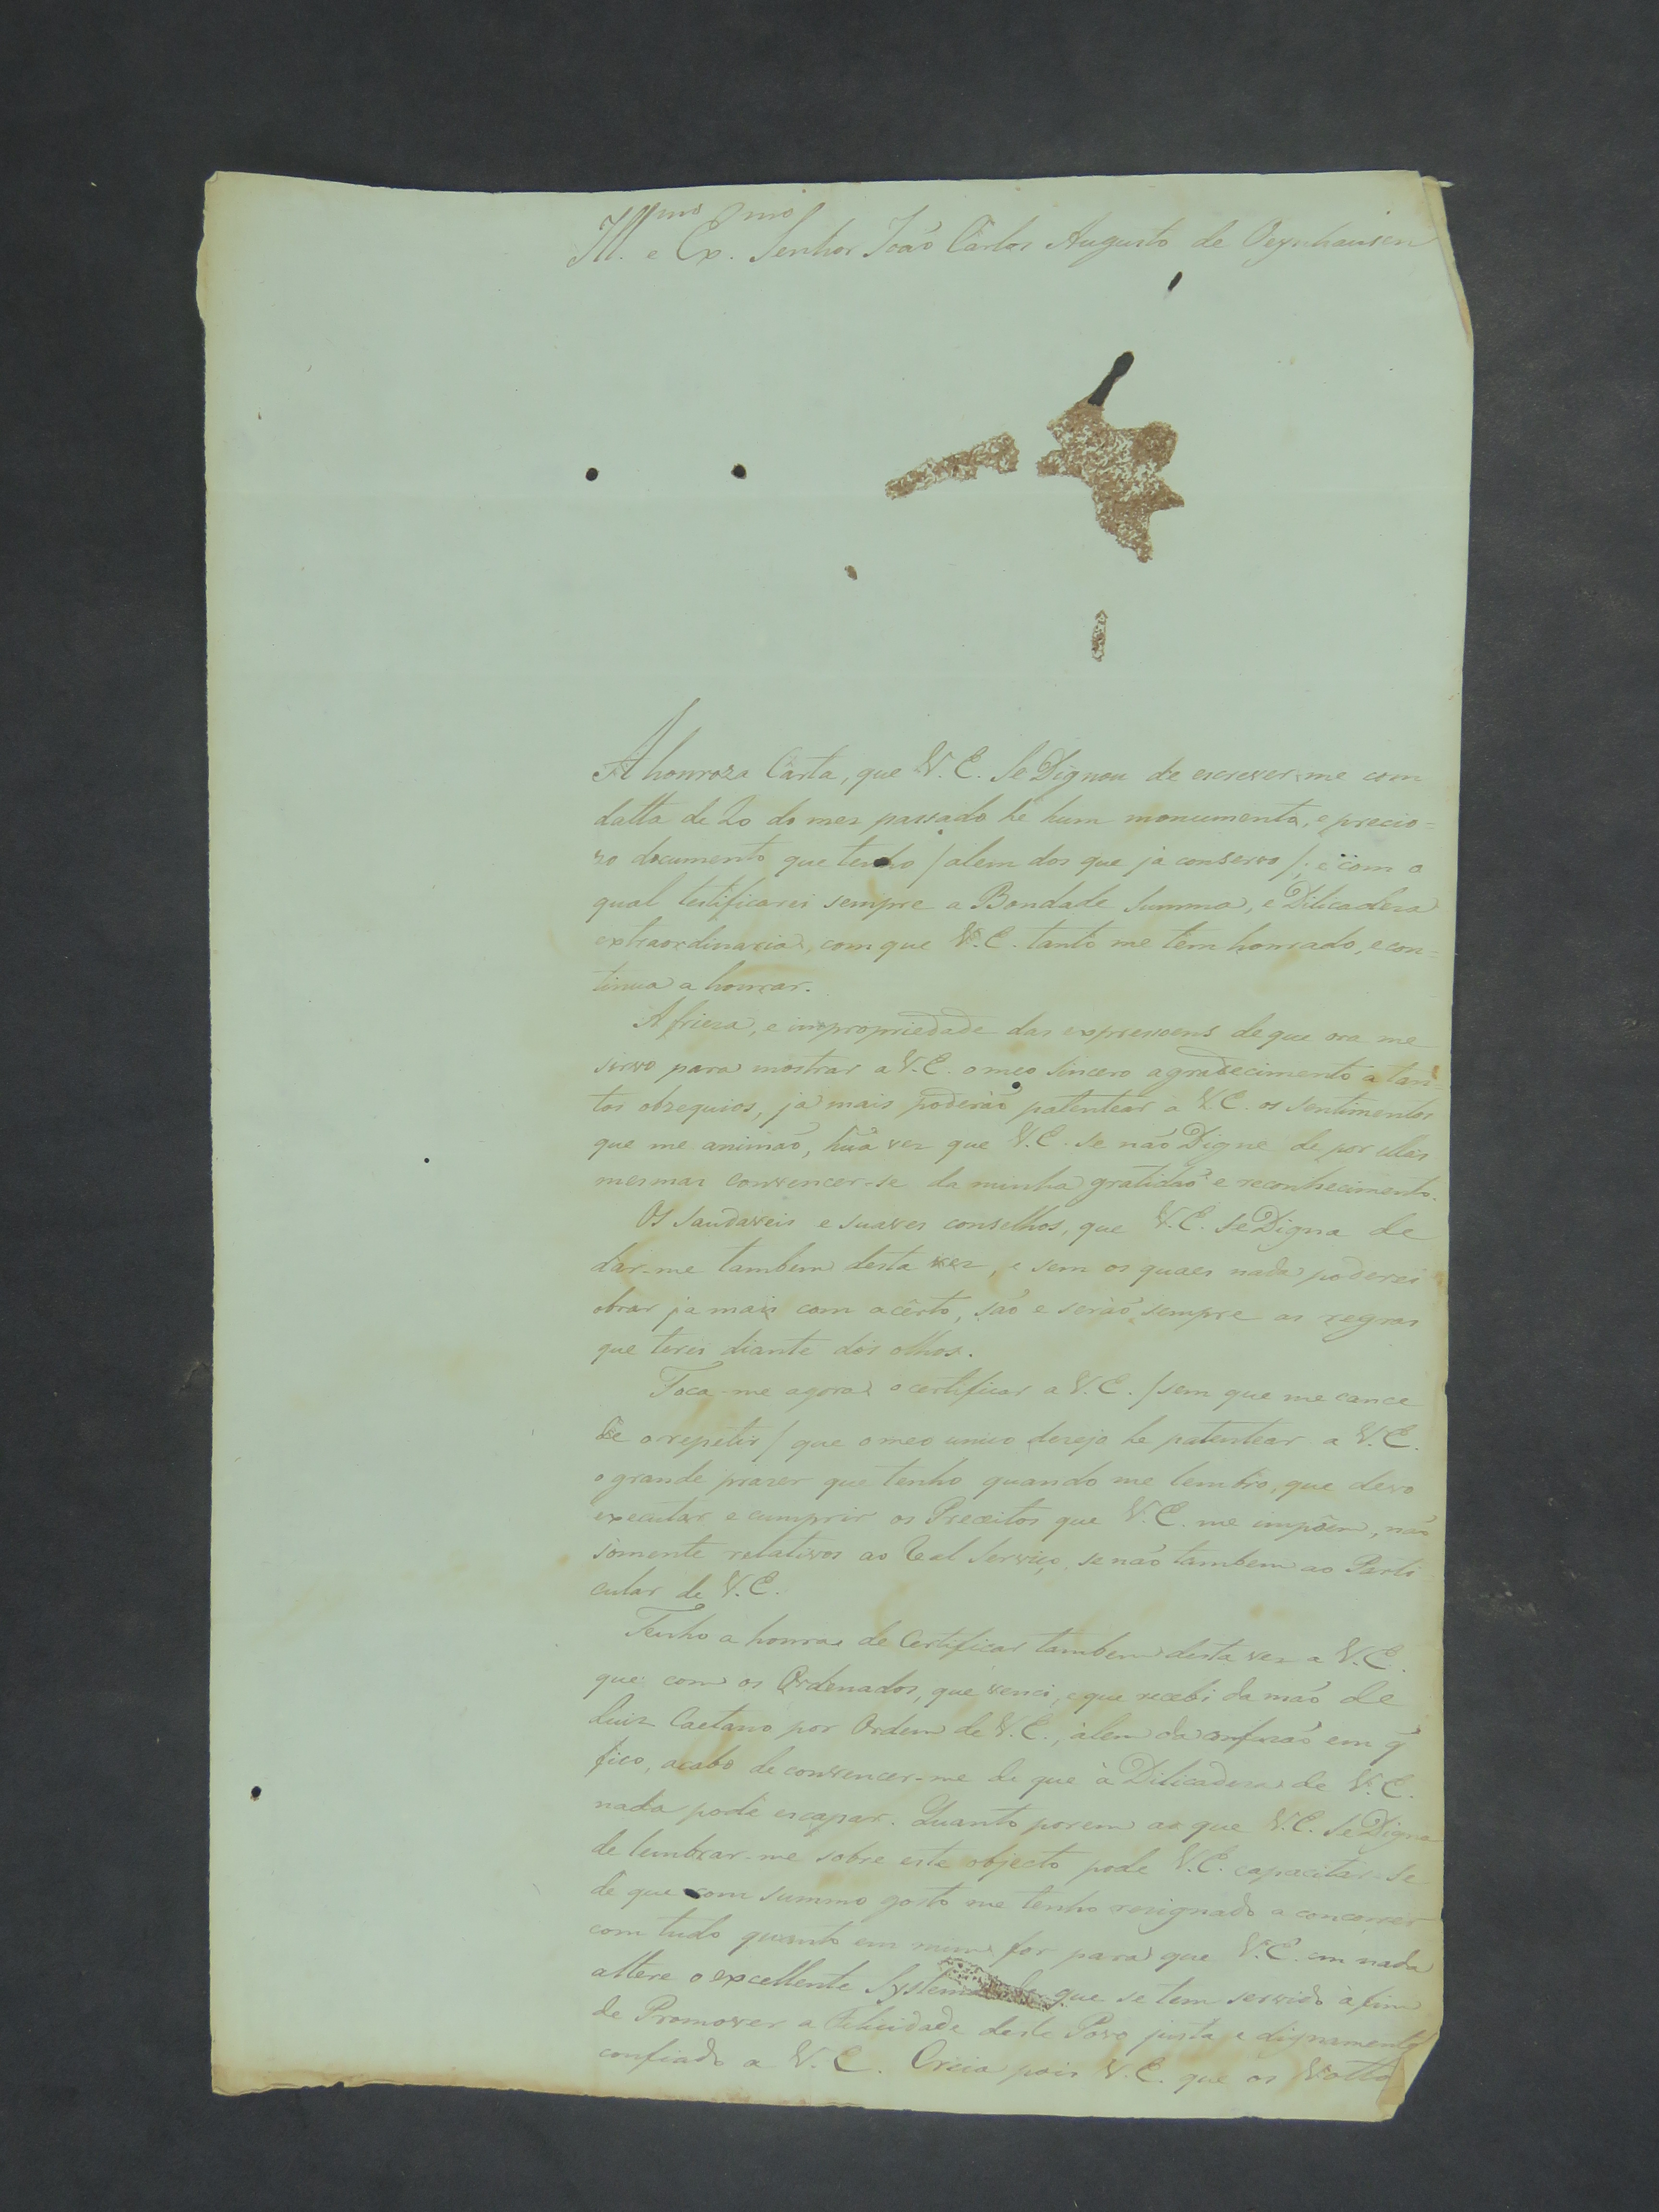 Ill.mo e Ex.mo Senhor João Carlos Augusto de Oeynhausen
A honroza Carta, que V. E. Se Dignou de escrever-me com
datta de 20 do mez passado he hum monumento, e precio=
zo documento que tenho /alem dos que já conservo/, e com o
qual testificarei sempre a Bondade Summa, e Dilicadeza
extraordinaria, com que V. E. tanto me tem honrado, e con=
tinua a honrar.
A frieza, e impropriedade das expressoens de que ora me
sirvo para mostrar a V. E. o meo sincero agradecimento a tan=
tos obzequios, já mais poderáõ patentear a V. E. os sentimentos
que me animaõ, hũa vez que V. E. se naõ Digne de por ellas
mesmas convencer-se da minha gratidaõ e reconhecimento.
Os saudaveis e suaves conselhos, que V. E. Se Digna de
dar-me tambem desta vez, e sem os quaes nada poderei
obrar já mais com acêrto, saõ e seráõ sempre as regras
que terei diante dos olhos.
Toca-me agora o certificar a V. E. /sem que me cance
de o repetir/ que o meo unico dezejo he patentear a V. E.
o grande prazer que tenho quando me lembro, que devo
executar e cumprir os Preceitos que V. E. me impôem, naõ
sómente relativos ao Real Serviço, se naõ tambem ao Parti
cular de V. E.
Tenho a honra de Certificar tambem desta vez a V. E.
que com os Ordenados, que venci, e que recebi da maõ de
Luiz Caetano por Ordem de V. E., alem da confuzaõ em q̃
fico, acabo de convencer-me de que à Dilicadeza de V. E.
nada pode escapar. Quanto porem ao que V. E. Se Digna
de lembrar-me sobre este objecto pode V. E. capacitar-se
de que com summo gosto me tenho resignado a concorrer
com tudo quanto em mim for para que V. E. em nada
altere o excellente Systema de que se tem servido à fim
de Promover a Felicidade deste Povo justa e dignamente
confiado a V. E. Creia pois V. E. que os Votto